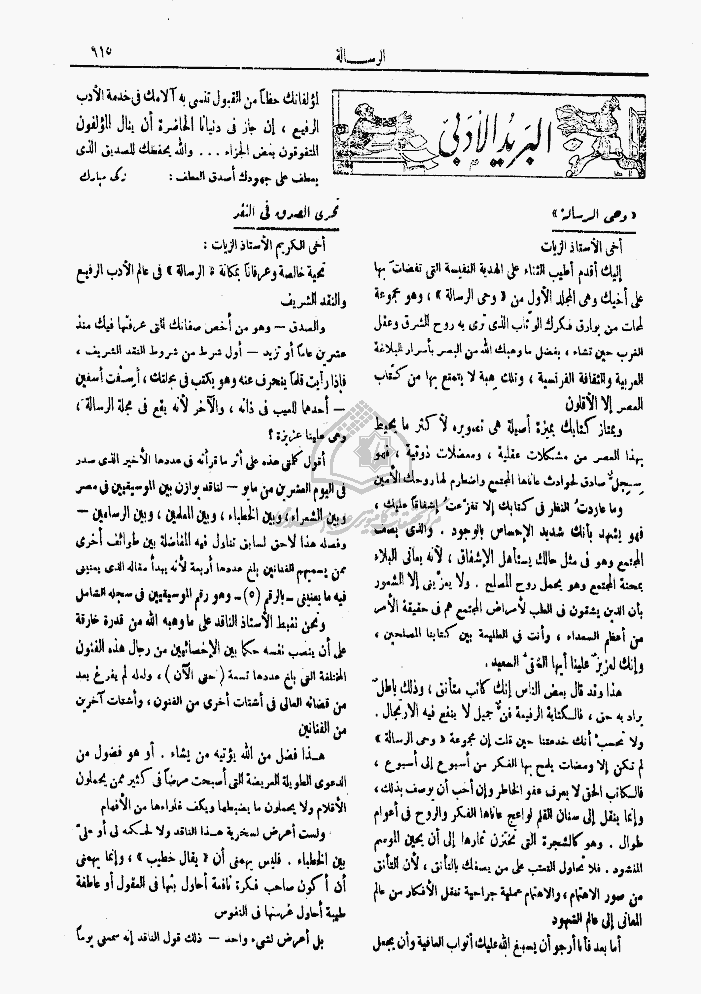 الرسالة
٩١٥
البريد الأدبي
« وحى الرسالة »
أخى الأستاذ الزيات
إليك أقدم أطيب الثناء على الهدية النفيسة التى تفضلت بها
على أخيك وهى المجلد الأول من « وحى الرسالة » ، وهو مجموعة
لمحات من بوارق فكرك الوثاب الذى ترى به روح الشرق وعقل
الغرب حين تشاء ، بفضل ما وهبك الله من البصر بأسرار البلاغة
العربية والثقافة الفرنسية ، وتلك هبة لا يتمتع بها من كتاب
العصر إلا الأقلون
ويمتاز كتابك بميزة أصيلة هى تصويره لأكثر ما يحيط
بهذا العصر من مشكلات عقلية ، ومعضلات ذوقية ، فهو
سجل صادق لحوادث عاناها المجتمع واضطرم لها روحك الأمين
وما عاودت النظر فى كتابك إلا تفزعت إشفاقاً عليك ،
فهو يشهد بأنك شديد الإحساس بالوجود . والذى يصف
المجتمع وهو فى مثل حالك يستأهل الإشفاق ، لأنه يعانى البلاء
بمحنة المجتمع وهو يحمل روح المصلح . ولا يعزينى إلا الشعور
بأن الذين يشقون فى الطب لأمراض المجتمع هم فى حقيقة الأمر
من أعظم السعداء ، وأنت فى الطليعة بين كتابنا المصلحين ،
وإنك لعزيز علينا أيها الشقى السعيد .
هذا وقد قال بعض الناس إنك كاتب متأنق ، وذلك باطل
يراد به حق ، فالكتابة الرفيعة فن جميل لا ينفع فيه الارتجال .
ولا تحسب أنك خدعتنا حين قلت إن مجموعة « وحى الرسالة »
لم تكن إلا ومضات يلمح بها الفكر من أسبوع إلى أسبوع ،
فالكاتب الحق لا يعرف عفو الخاطر وإن أحب أن يوصف بذلك ،
وإنما ينقل إلى سنان القلم لواعج عاناها الفكر والروح فى أعوام
طوال . وهو كالشجرة التى تختزن ثمارها إلى أن يحين الموسم
المنشود . فلا تحاول التعتب على من يصفك بالتأنق ، لأن التأنق
من صور الاهتمام ، والاهتمام عملية جراحية تنقل الأفكار من عالم
المعانى إلى عالم الشهود
أما بعد فأنا أرجو أن يسبغ الله عليك أثواب العافية وأن يجعل
لمؤلفاتك حظاً من القبول تنسى به آلامك فى خدمة الأدب
الرفيع ، إن جاز فى دنيانا الحاضرة أن ينال المؤلفون
المتفوقون بعض الجزاء ... والله يحفظك للصديق الذى
يعطف على جهودك أصدق العطف : زكى مبارك
تحرى الصدق فى النقد
أخى الكريم الأستاذ الزيات :
تحية خالصة وعرفاناً بمكانة « الرسالة » فى عالم الأدب الرفيع
والنقد الشريف
والصدق — وهو من أخص صفاتك التى عرفتها فيك منذ
عشرين عاماً أو تزيد — أول شرط من شروط النقد الشريف ،
فإذا رأيت قلماً ينحرف عنه وهو يكتب فى مجلتك ، أسفت أسفين
— أحدهما للعيب فى ذاته ، والآخر لأنه يقع فى مجلة الرسالة ،
وهى علينا عزيزة ؟
أقول كلمتى هذه على أثر ما قرأته فى عددها الأخير الذى صدر
فى اليوم العشرين من مايو — لناقد يوازن بين الموسيقيين فى مصر
وبين الشعراء ، وبين الخطباء ، وبين الممثلين ، وبين الرسامين —
وفصله هذا لاحق لسابق تناول فيه المفاضلة بين طوائف أخرى
ممن يسميهم الفنانين بلغ عددها أربعة لأنه يبدأ مقاله الذى يعنينى
فيه ما يعنينى — بالرقم (٥) — وهو رقم الموسيقيين فى سجله الشامل
ونحن نغبط الأستاذ الناقد على ما وهبه الله من قدرة خارقة
على أن ينصب نفسه حكما بين الإخصائيين من رجال هذه الفنون
المختلفة التى بلغ عددها تسعة ( حتى الآن ) ، ولعله لم يفرغ بعد
من قضائه العالى فى أشتات أخرى من الفنون ، وأشتات آخرين
من الفنانين
هذا فضل من الله يؤتيه من يشاء . أو هو فضول من
الدعوى الطويلة العريضة التى أصبحت مرضاً فى كثير ممن يحملون
الأقلام ولا يحملون ما يضبطها ويكف غلواءها من الأفهام
ولست أعرض لسخرية هذا الناقد ولا لحكمه لى أو علىّ
بين الخطباء . فليس يهمنى أن « يقال خطيب » ، وإنما يهمنى
أن أكون صاحب فكرة نافعة أحاول بثها فى العقول أو عاطفة
طيبة أحاول غرسها فى النفوس
بل أعرض لشىء واحد — ذلك قول الناقد إنه سمعنى يوماً